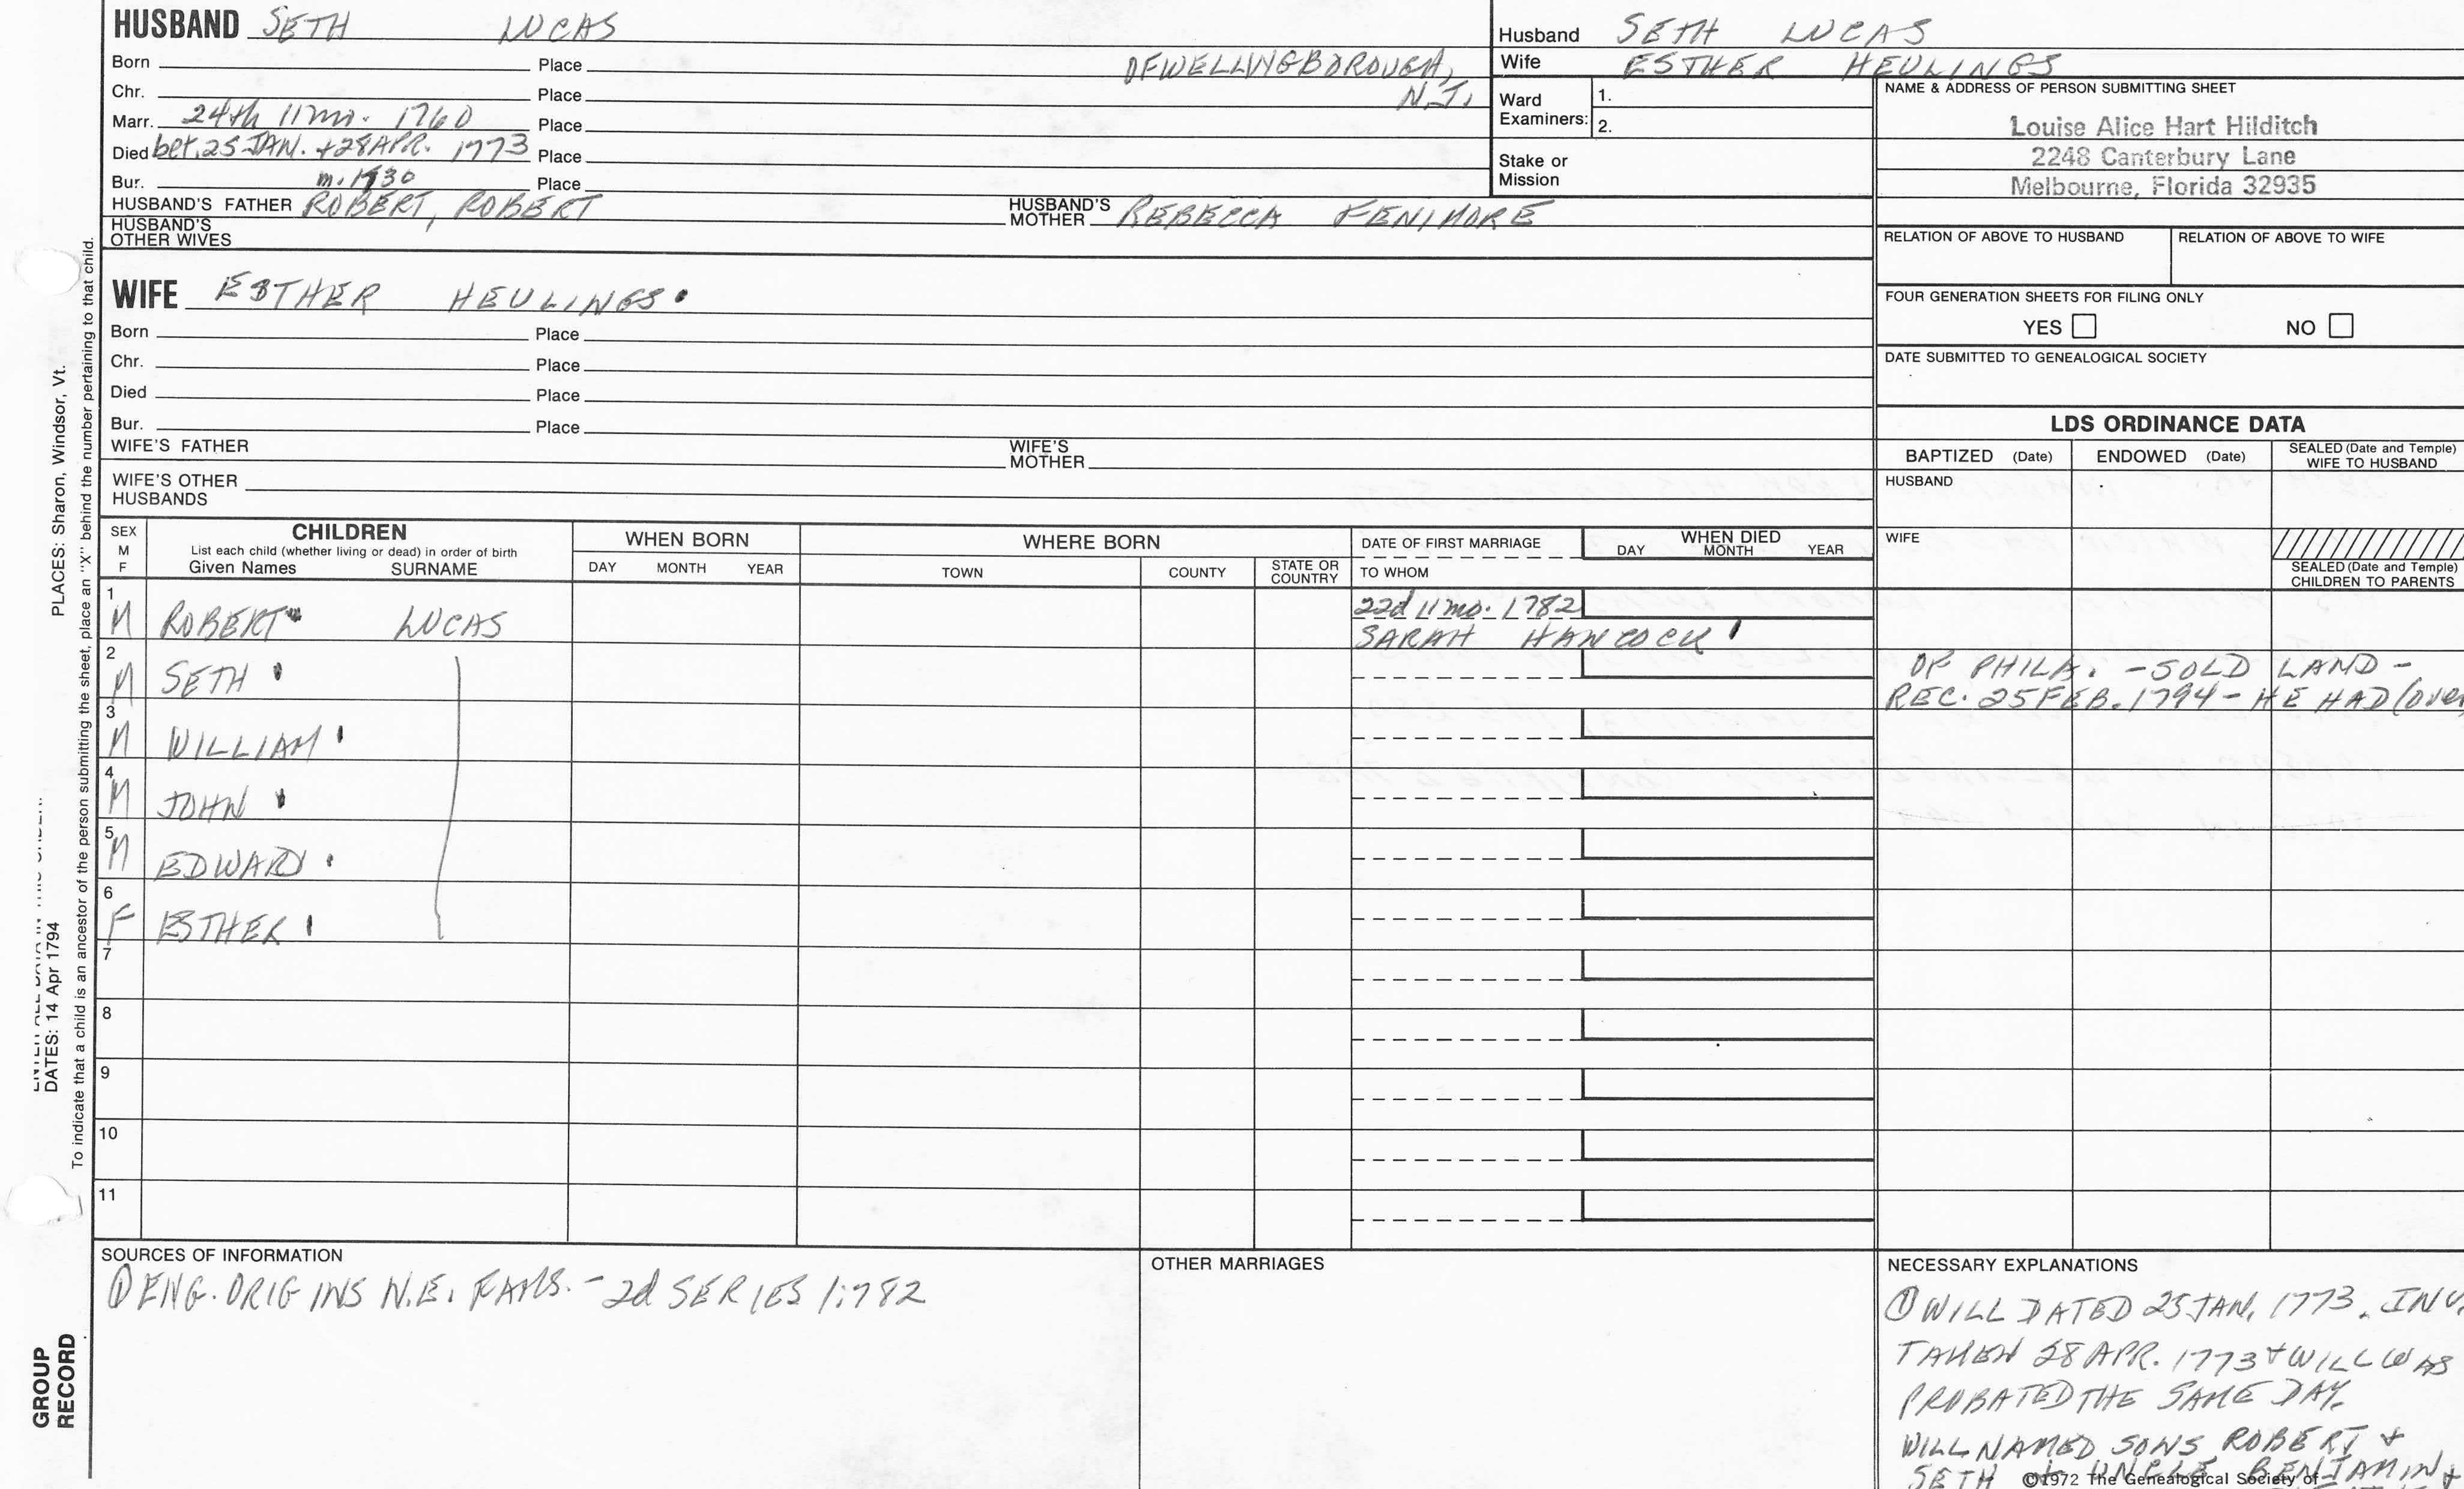 HUSBAND SETH LUCAS
Born Place OF WELLINGBOROUGH,
Chr. Place N.J.
Marr. 24th 11 mo. 1760 Place
Died bet. 25 JAN. + 28 APR. 1773 Place
Bur. Place
m. 1730
HUSBAND'S FATHER ROBERT, ROBERT HUSBAND'S MOTHER REBECCA FENIMORE
HUSBAND'S OTHER WIVES
WIFE ESTHER HEULINGS
Born Place
Chr. Place
Died Place
Bur. Place
WIFE'S FATHER WIFE'S MOTHER
WIFE'S OTHER HUSBANDS
Husband SETH LUCAS
Wife ESTHER HEULINGS
Ward Examiners: 1.
2.
Stake or Mission
NAME & ADDRESS OF PERSON SUBMITTING SHEET
Louise Alice Hart Hilditch
2248 Canterbury Lane
Melbourne, Florida 32935
RELATION OF ABOVE TO HUSBAND RELATION OF ABOVE TO WIFE
FOUR GENERATION SHEETS FOR FILING ONLY
YES NO
DATE SUBMITTED TO GENEALOGICAL SOCIETY
LDS ORDINANCE DATA
BAPTIZED (Date) ENDOWED (Date) SEALED (Date and Temple) WIFE TO HUSBAND
HUSBAND
WIFE
SEALED (Date and Temple) CHILDREN TO PARENTS
SEX M F
CHILDREN
List each child (whether living or dead) in order of birth
Given Names SURNAME
WHEN BORN
DAY MONTH YEAR
WHERE BORN
TOWN COUNTY STATE OR COUNTRY
DATE OF FIRST MARRIAGE
TO WHOM
WHEN DIED
DAY MONTH YEAR
1 M ROBERT LUCAS 22d 11 mo. 1782
SARAH HANCOCK
2 M SETH OF PHILA. - SOLD LAND -
REC. 25 FEB. 1794 - HE HAD (over
3 M WILLIAM
4 M JOHN
5 M EDWARD
6 F ESTHER
7
8
9
10
11
SOURCES OF INFORMATION
① ENG. ORIGINS N.E. FAMS. - 2d SERIES 1:782
OTHER MARRIAGES
NECESSARY EXPLANATIONS
① WILL DATED 25 JAN. 1773. INV.
TAKEN 28 APR. 1773 + WILL WAS
PROBATED THE SAME DAY.
WILL NAMED SONS ROBERT +
SETH UNCLE BENJAMIN +
©1972 The Genealogical Society of
PLACES: Sharon, Windsor, Vt.
DATES: 14 Apr 1794
To indicate that a child is an ancestor of the person submitting the sheet, place an "X" behind the number pertaining to that child.
GROUP
RECORD